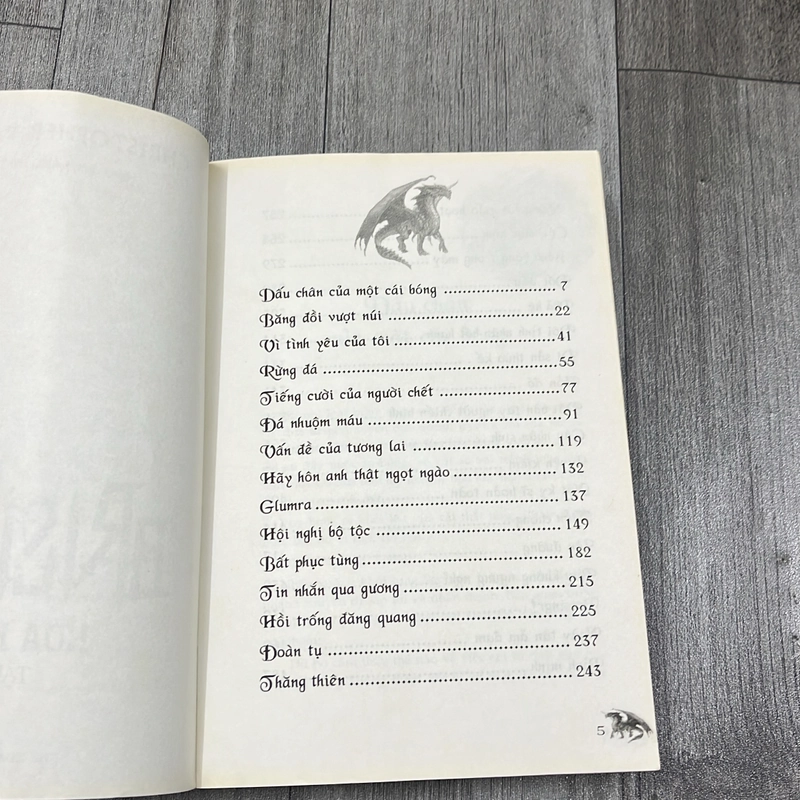 Dấu chân của một cái bóng ........................ 7
Băng đồi vượt núi ................................... 22
Vì tình yêu của tôi ................................... 41
Rừng đá .................................................. 55
Tiếng cười của người chết ........................ 77
Đá nhuộm máu ....................................... 91
Vấn đề của tương lai .............................. 119
Hãy hôn anh thật ngọt ngào ..................... 132
Glumra ................................................... 137
Hội nghị bộ tộc ....................................... 149
Bất phục tùng ......................................... 182
Tin nhắn qua gương ................................ 215
Hồi trống đăng quang .............................. 225
Đoàn tụ .................................................. 237
Thăng thiên ............................................ 243
5